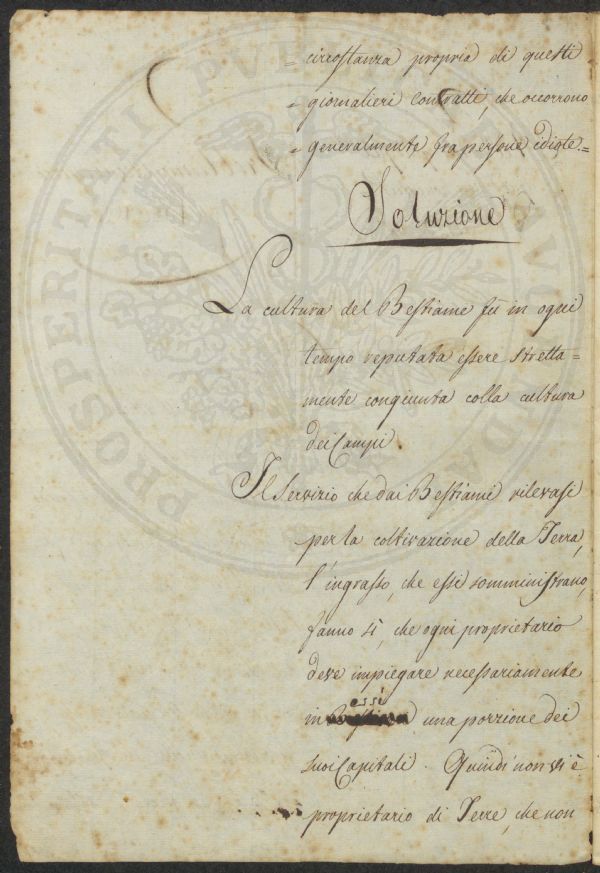 = circostanza propria di questi
= giornalieri Contratti, che occorrono
= generalmente fra persone idiote. =
Soluzione
La cultura del Bestiame fù in ogni
tempo reputata essere stretta=
mente congiunta colla cultura
dei Campi
Il Servizio che dai Bestiami rilevasi
per la coltivazione della Terra,
l'ingrasso, che essi somministrano,
fanno sì, che ogni proprietario
deve impiegare necessariamente
in una porzione dei
suoi Capitali. Quindi non vi è
proprietario di Terre, che non
PROSPERITATI PVBLICAE AVGENDAE